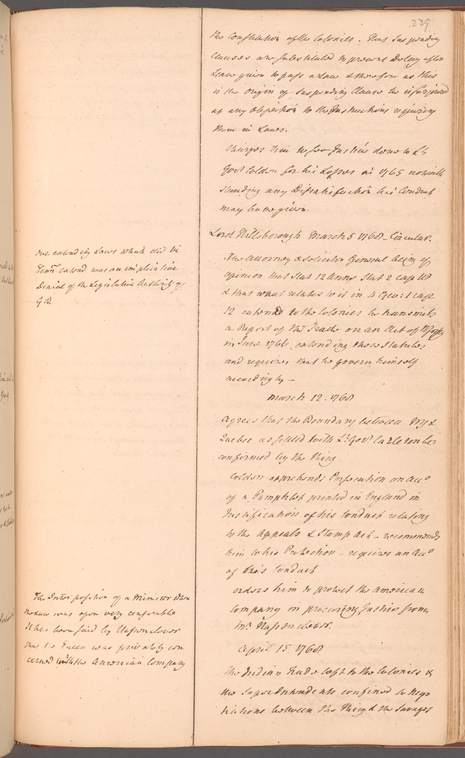 239
the Constitution of the Colonies. That Suspending
Clauses was substituted to prevent Delay after
Leave given to pass a Law & therefore as this
is the Origin of Suspending Clauses he is surprised
at any Objection to the Instructions requiring
them in Laws.
Charges him to see Justice done to Lt
Govr Colden for his Losses in 1765 notwith
standing any Dissatisfaction his Conduct
may have given.
Lord Hillsborough March 5 1768 Circular.
The Attorney & Solicitor General being of
Opinion that Stat 12 Anne Stat 2 cap
& that what relates to it in Geo cap
12 extend to the Colonies he transmits
a Report of the on an Act of
in June 1766 extending those Statutes
and requires that he govern himself
accordingly –
Our extending Laws which did be
fore extend was an implicative
Denial of the Legislative Authority of
GB
March 12. 1768
Agrees that the Boundary between NY &
Quebec as settled with Lt Govr Carleton be
confirmed by the King
Colden apprehends Persecution on Acco
of a Pamphlet printed in England in
Justification of his Conduct relating
to the Appeals & Stamp Act – recommends
him to his Protection – requires an Acco
of this Conduct
orders him to protect the American
Company on procuring from
Mr Hasenclever.
The Interposition of a Minister
was upon very
It has been said by Hasenclever
that the Queen was privately con
cerned with the American Company
April 15. 1768
The Indian Trade left to the Colonies &
the Superintendents confined to Nego
tiations between the King & the Savages